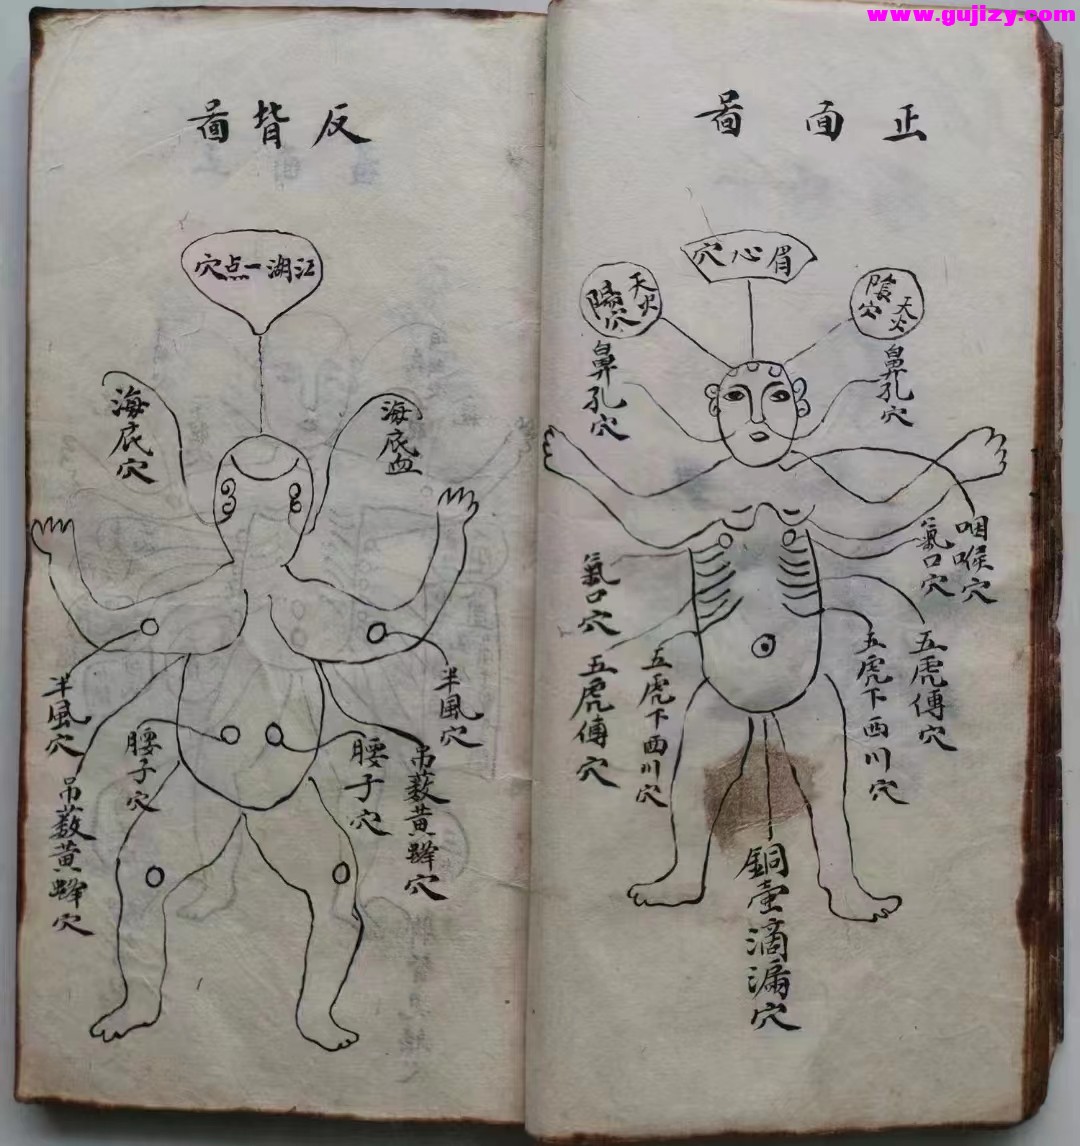 www.gujizy.com
正面啚
眉心穴
天火
陰穴
天火
陽穴
鼻孔穴
鼻孔穴
咽喉穴
氣口穴
氣口穴
五虎傳穴
五虎下西川穴
五虎下西川穴
五虎傳穴
銅壺滴漏穴
反背啚
江湖一点穴
海底血
海底穴
半風穴
半風穴
吊薮黄蜂穴
腰子穴
腰子穴
吊薮黄蜂穴